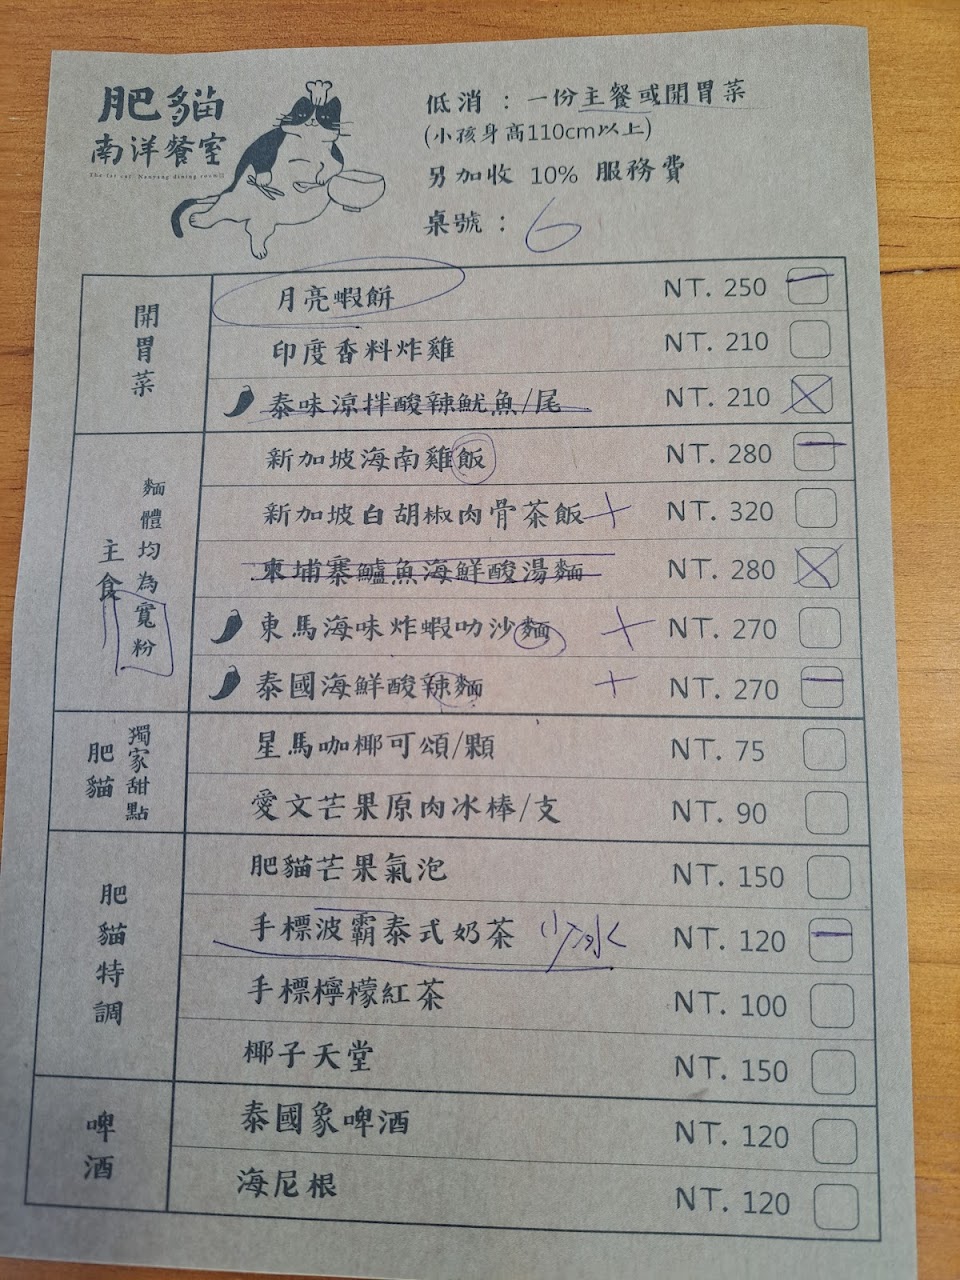 肥貓
南洋餐室
The fat cat. Nanyang dining room
低消：一份主餐或開胃菜
(小孩身高110cm以上)
另加收 10% 服務費
桌號：6
開胃菜
月亮蝦餅 NT. 250
印度香料炸雞 NT. 210
泰味涼拌酸辣魷魚/尾 NT. 210
主食
麵體均為寬粉
新加坡海南雞飯 NT. 280
新加坡白胡椒肉骨茶飯 NT. 320
柬埔寨鱸魚海鮮酸湯麵 NT. 280
東馬海味炸蝦叻沙麵 NT. 270
泰國海鮮酸辣麵 NT. 270
肥貓
獨家甜點
星馬咖椰可頌/顆 NT. 75
愛文芒果原肉冰棒/支 NT. 90
肥貓特調
肥貓芒果氣泡 NT. 150
手標波霸泰式奶茶 少冰 NT. 120
手標檸檬紅茶 NT. 100
椰子天堂 NT. 150
啤酒
泰國象啤酒 NT. 120
海尼根 NT. 120